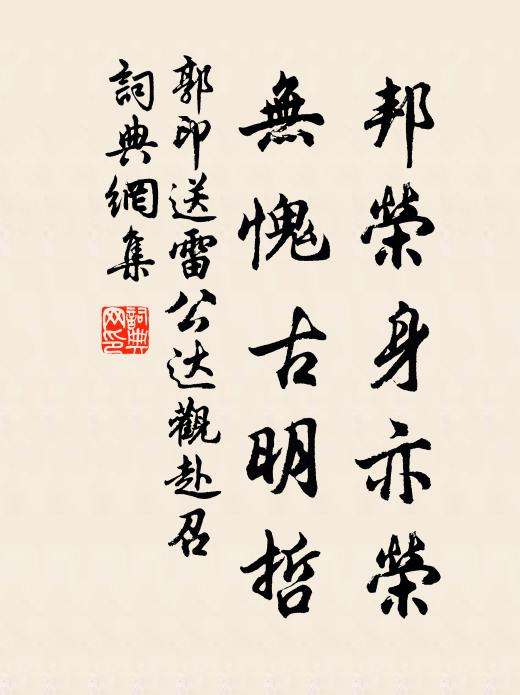 邦榮身亦榮
無愧古明哲
郭印送雷公达觀赴召
詞典網集
詞典网印